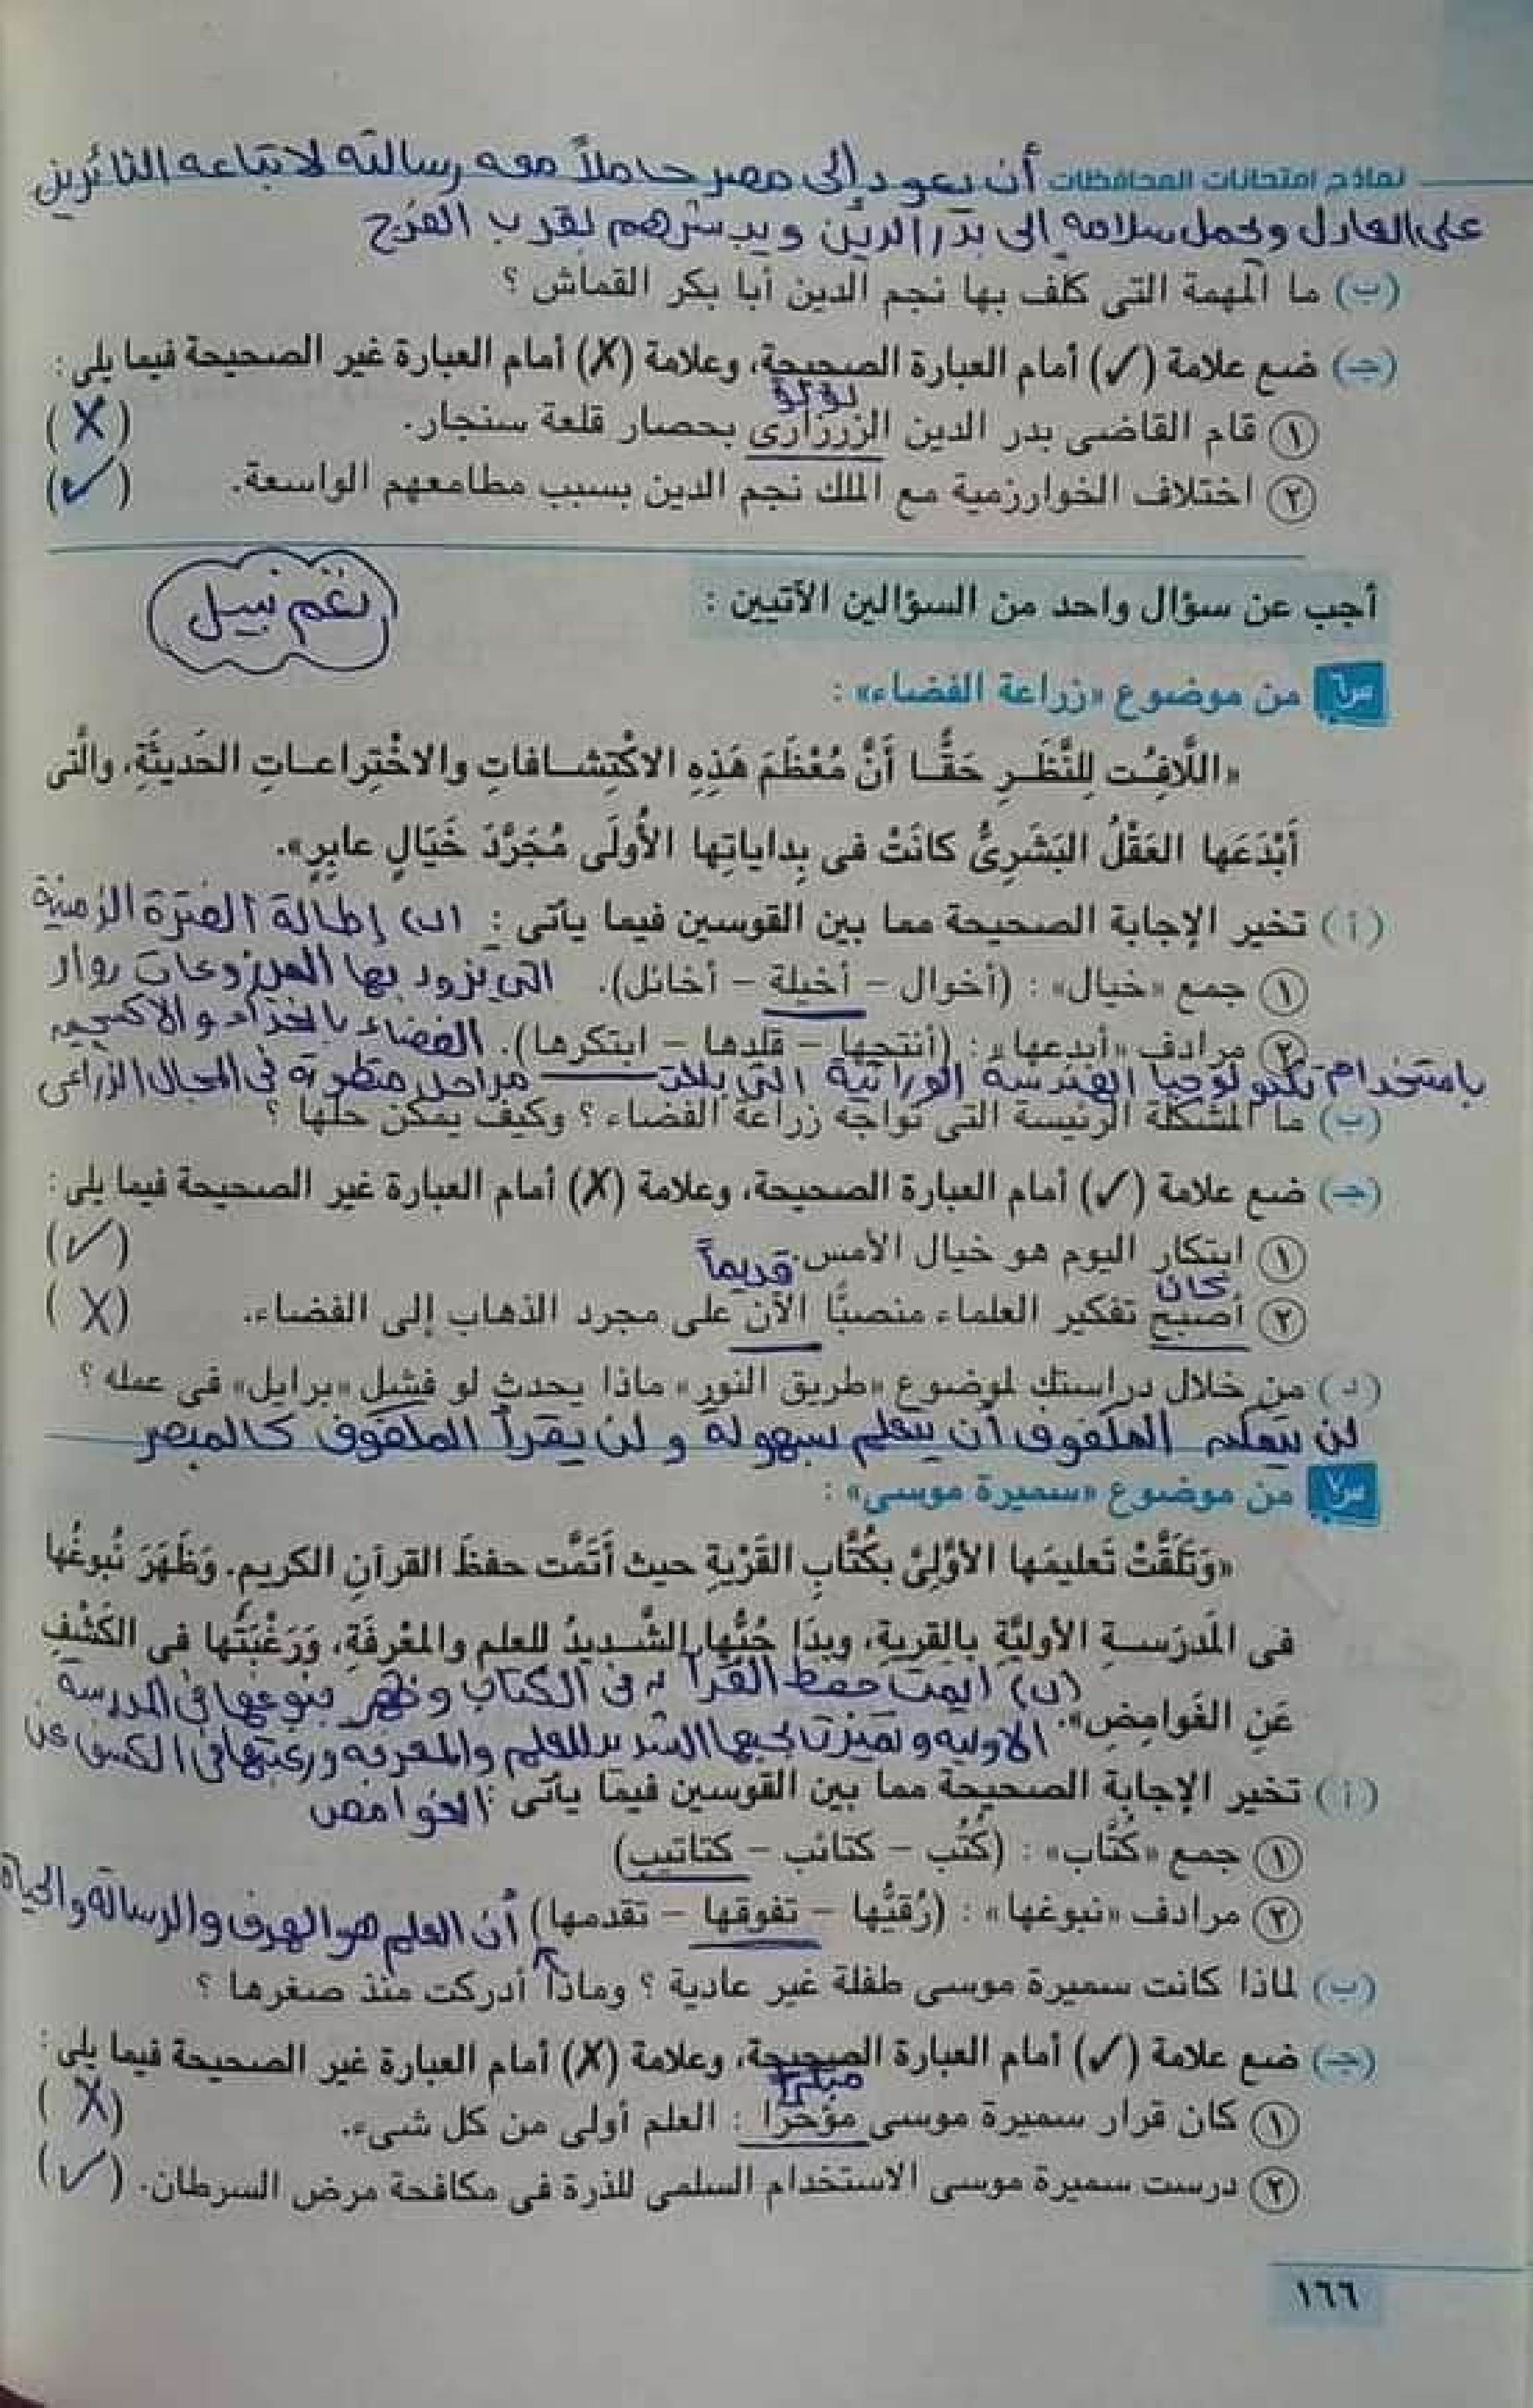 نماذج امتحانات المحافظات أن يعود إلى مصر حاملاً معه رسالته لاتباعه الثائرين
على العادل ويحمل سلامه إلى بدر الدين ويبشرهم بقرب الفرج
(ب) ما المهمة التى كلف بها نجم الدين أبا بكر القماش ؟
(جـ) ضع علامة (✓) أمام العبارة الصحيحة، وعلامة (X) أمام العبارة غير الصحيحة فيما يلى :
لؤلؤ
١ قام القاضى بدر الدين الزرزارى بحصار قلعة سنجار. (X)
٢ اختلاف الخوارزمية مع الملك نجم الدين بسبب مطامعهم الواسعة. (✓)
أجب عن سؤال واحد من السؤالين الآتيين :
نغم نبيل
س٦ من موضوع «زراعة الفضاء» :
«اللَّافِت لِلنَّظَرِ حَقًّا أَنَّ مُعْظَمَ هَذِهِ الاكْتِشافاتِ والاخْتِراعاتِ الحَديثَةِ، والَّتى
أَبْدَعَها العَقْلُ البَشَرِىُّ كانَتْ فى بِداياتِها الأُولَى مُجَرَّدَ خَيَالٍ عابِرٍ».
(أ) تخير الإجابة الصحيحة مما بين القوسين فيما يأتى : (ب) إطالة الفترة الزمنية
١ جمع «خيال» : (أخوال – أخيلة – أخائل). التى تزود بها المزروعات رواد
٢ مرادف «أبدعها» : (أنتجها – قلدها – ابتكرها). الفضاء بالغذاء والاكسجين
باستخدام تكنولوجيا الهندسة الوراثية التى بلغت مراحل متطورة فى المجال الزراعى
(ب) ما المشكلة الرئيسة التى تواجه زراعة الفضاء ؟ وكيف يمكن حلها ؟
(جـ) ضع علامة (✓) أمام العبارة الصحيحة، وعلامة (X) أمام العبارة غير الصحيحة فيما يلى :
١ ابتكار اليوم هو خيال الأمس. (✓)
كان قديماً
٢ أصبح تفكير العلماء منصبًّا الآن على مجرد الذهاب إلى الفضاء. (X)
(د) من خلال دراستك لموضوع «طريق النور» ماذا يحدث لو فشل «برايل» فى عمله ؟
لن يتمكن المكفوف أن يتعلم بسهولة ولن يقرأ المكفوف كالمبصر
س٧ من موضوع «سميرة موسى» :
«وَتَلَقَّتْ تَعليمَها الأوَّلِىَّ بكُتَّابِ القَرْيةِ حيث أَتَمَّت حفظَ القرآنِ الكريمِ. وَظَهَرَ نُبوغُها
فى المَدرَسةِ الأوليَّةِ بالقريةِ، وبدَا حُبُّها الشَّديدُ للعلمِ والمعْرِفَةِ، وَرَغْبَتُها فى الكَشْفِ
(ب) اتمت حفظ القرآن فى الكتاب وظهر نبوغها فى المدرسة
عَنِ الغَوامِضِ». الاوليه وتميزت بحبها الشديد للعلم والمعرفه ورغبتها فى الكشف عن
(أ) تخير الإجابة الصحيحة مما بين القوسين فيما يأتى : الغوامض
١ جمع «كُتَّاب» : (كُتُب – كتائب – كتاتيب)
٢ مرادف «نبوغها» : (رُقيُّها – تفوقها – تقدمها) أن العلم هو الهدف والرسالة والحياة
(ب) لماذا كانت سميرة موسى طفلة غير عادية ؟ وماذا أدركت منذ صغرها ؟
(جـ) ضع علامة (✓) أمام العبارة الصحيحة، وعلامة (X) أمام العبارة غير الصحيحة فيما يلى :
مبكراً
١ كان قرار سميرة موسى مؤخرًا : العلم أولى من كل شىء. (X)
٢ درست سميرة موسى الاستخدام السلمى للذرة فى مكافحة مرض السرطان. (✓)
١٦٦